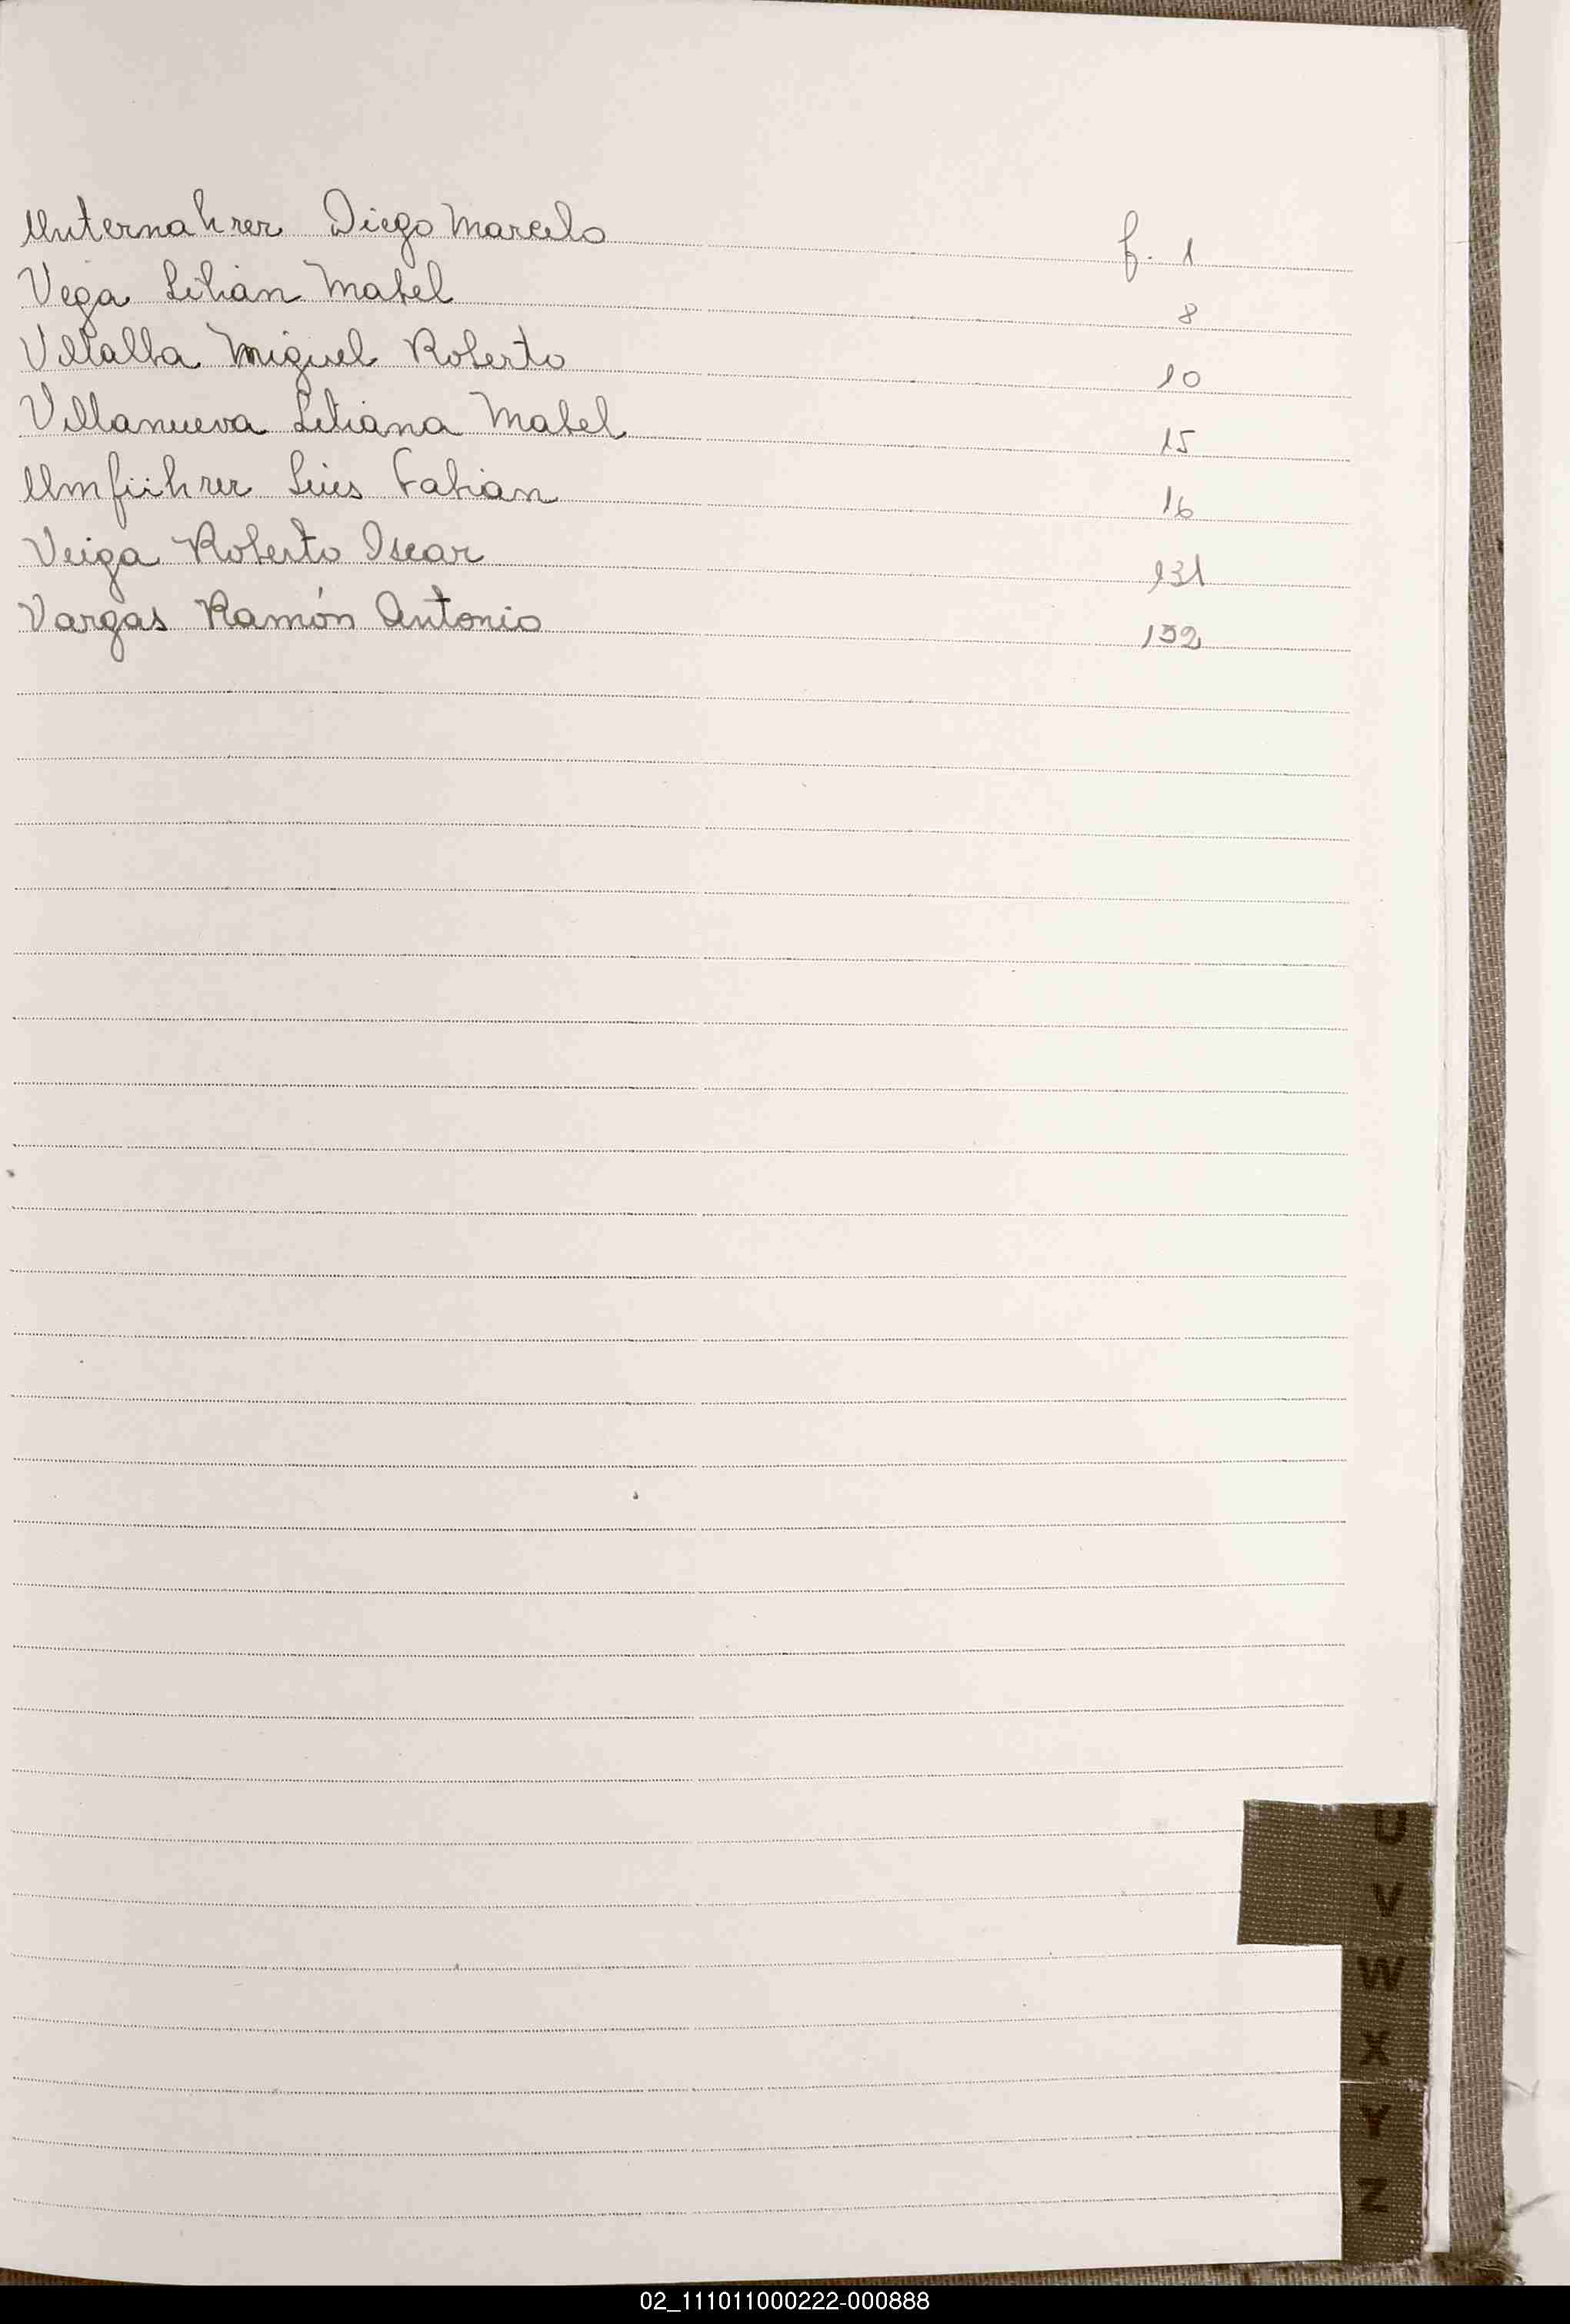 Unternahrer Diego Marcelo f. 1
Vega Lilian Mabel 8
Villalba Miguel Roberto 10
Villanueva Liliana Mabel 15
Umführer Luis Fabian 16
Veiga Roberto Oscar 131
Vargas Ramón Antonio 132
U
V
W
X
Y
Z
02_111011000222-000888